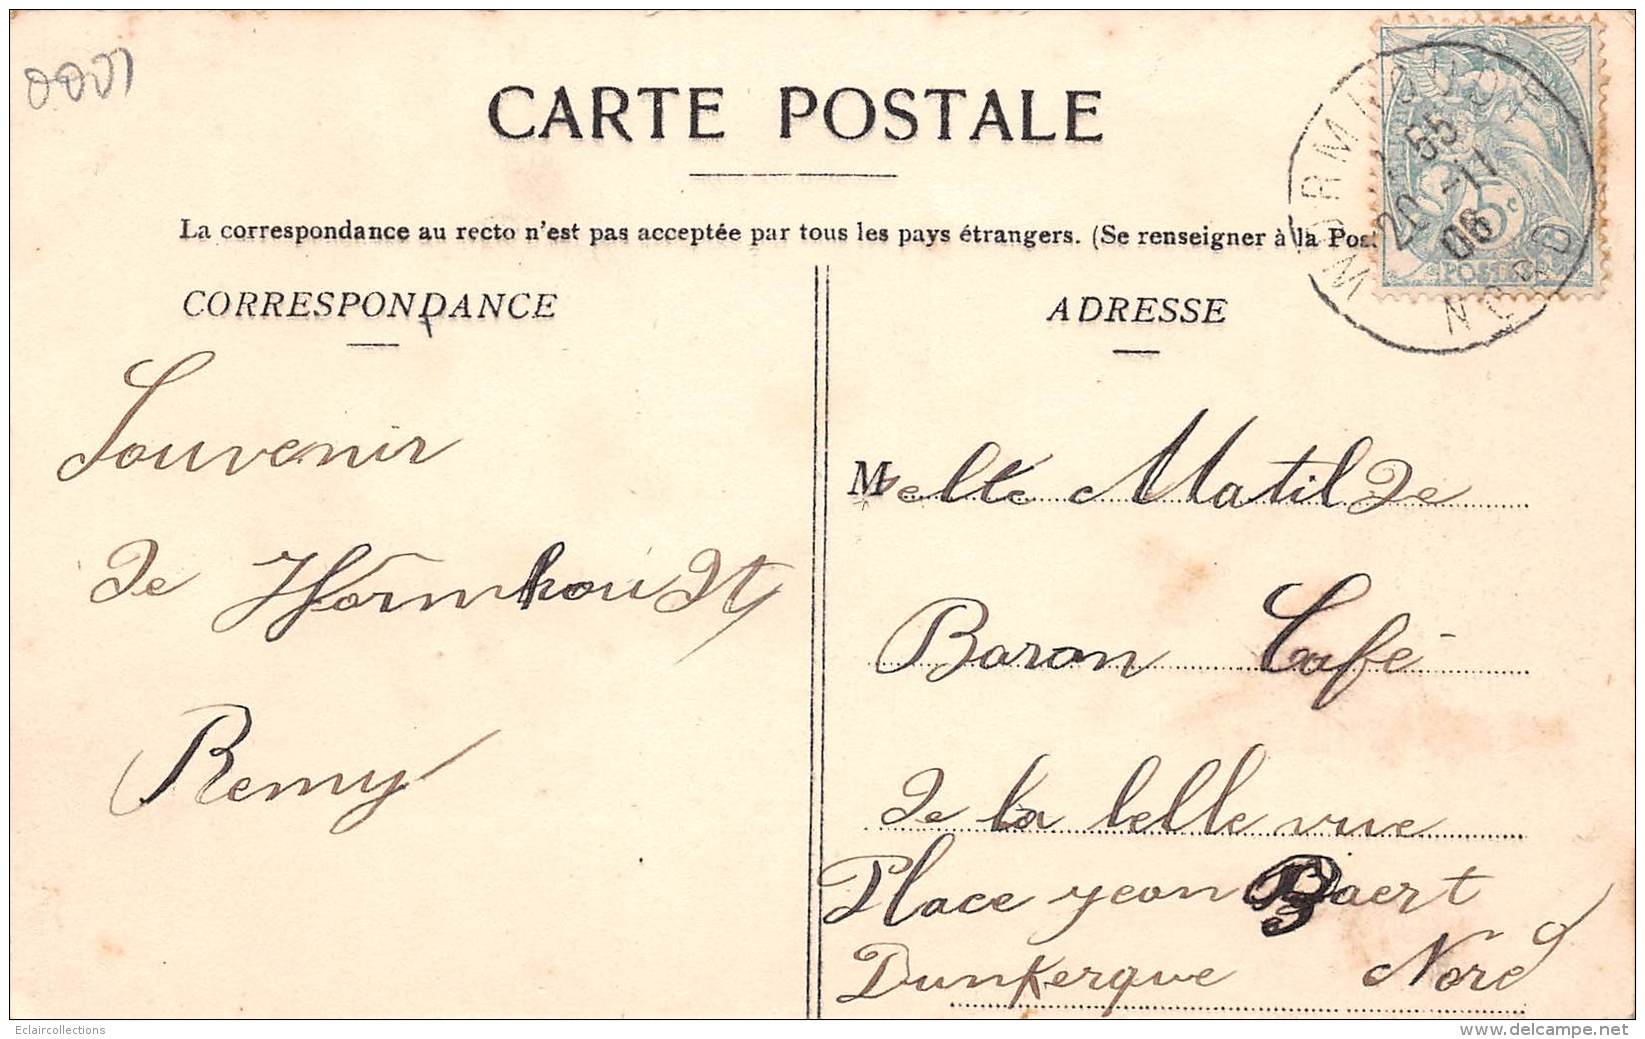 CARTE POSTALE
La correspondance au recto n'est pas acceptée par tous les pays étrangers. (Se renseigner à la Pos
CORRESPONDANCE
Souvenir
de Wormhoudt
Remy
ADRESSE
Melle Matilde
Baron Café
de la belle vue
Place jean Baert
Dunkerque Nord
WORMHOUDT
55
20 -11
06
NORD
5c
POSTES
Eclaircollections
www.delcampe.net